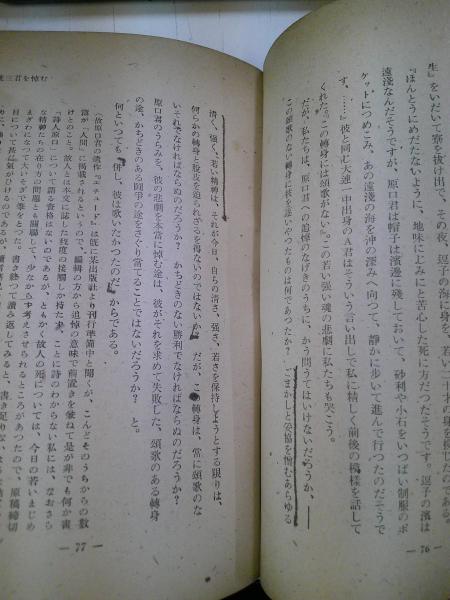 生』をいだいて寮を抜け出で、その夜、逗子の海に身を、若い二十才の身を投じたのであつた。
『ほんとうにめだたないように、地味にじみにと苦心した死に方だつたそうです。逗子の濱は
遠淺なんだそうですが、原口君は帽子は濱邊に殘しておいて、砂利や小石をいつぱい制服のポ
ケットにつめこみ、あの遠淺の海を沖の深みへ向つて、靜かに歩いて進んで行つたのだそうで
す、……』彼と同む大連一中出身のA君はそういう言い出して私に精しく前後の模樣を話して
くれた。『この轉身には頌歌がない』。この若い強い魂の悲劇に私たちも哭こう。
だが、私たちは、原口君への追悼のなげきのうちに、かう問うてはいけないだろうか、――
この頌歌のない轉身に彼を逐いやつたものは何であつたか？ ごまかしと妥協を憎むあらゆる
76
荒三君を悼む
清く、強く、若い精神は、それが今日、自らの清さ、强さ、若さを保持しようとする限りは、
何らかの轉身と脱皮を迫られざるを得ないのではないか。だが、この轉身は、常に頌歌のな
いそれでなければならぬのだろうか？ かちどきのない勝利でなければならぬのだろうか？
原口君のうらみを、彼の悲劇を本當に悼む途は、彼がそれを求めて失敗した、頌歌のある轉身
の途、かちどきのある鬪爭の途をさぐり當てることではないだろうか？ と。
何といつても『併し、彼は歌いたかつたのだ』からである。
『故原口君の遺作『エチュード』は既に某出版社より刊行準備中と聞くが、こんどそのうちからの數
篇が『人間』に掲載されるというので、編輯の方から追悼の意味で前置きを兼ねて是が非でも何か書
けとのこと。故人とは本文に誌した程度の接觸しか持たず、ことに詩のわからない私には、なおさら
『詩人原口』について語る資格はないのであるが、ともかく故人の死については、今日の若いまじめ
な精神たちの在り方の問題とも關聯して、少なからず考えさせられるところがあつたので、原稿締切
まぎわになつて大いそぎで筆をとつた。書き終つて讀み返してみると、書き足りない
77